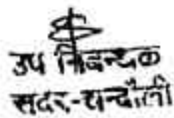 उप निबन्धक
सदर-चन्दौली